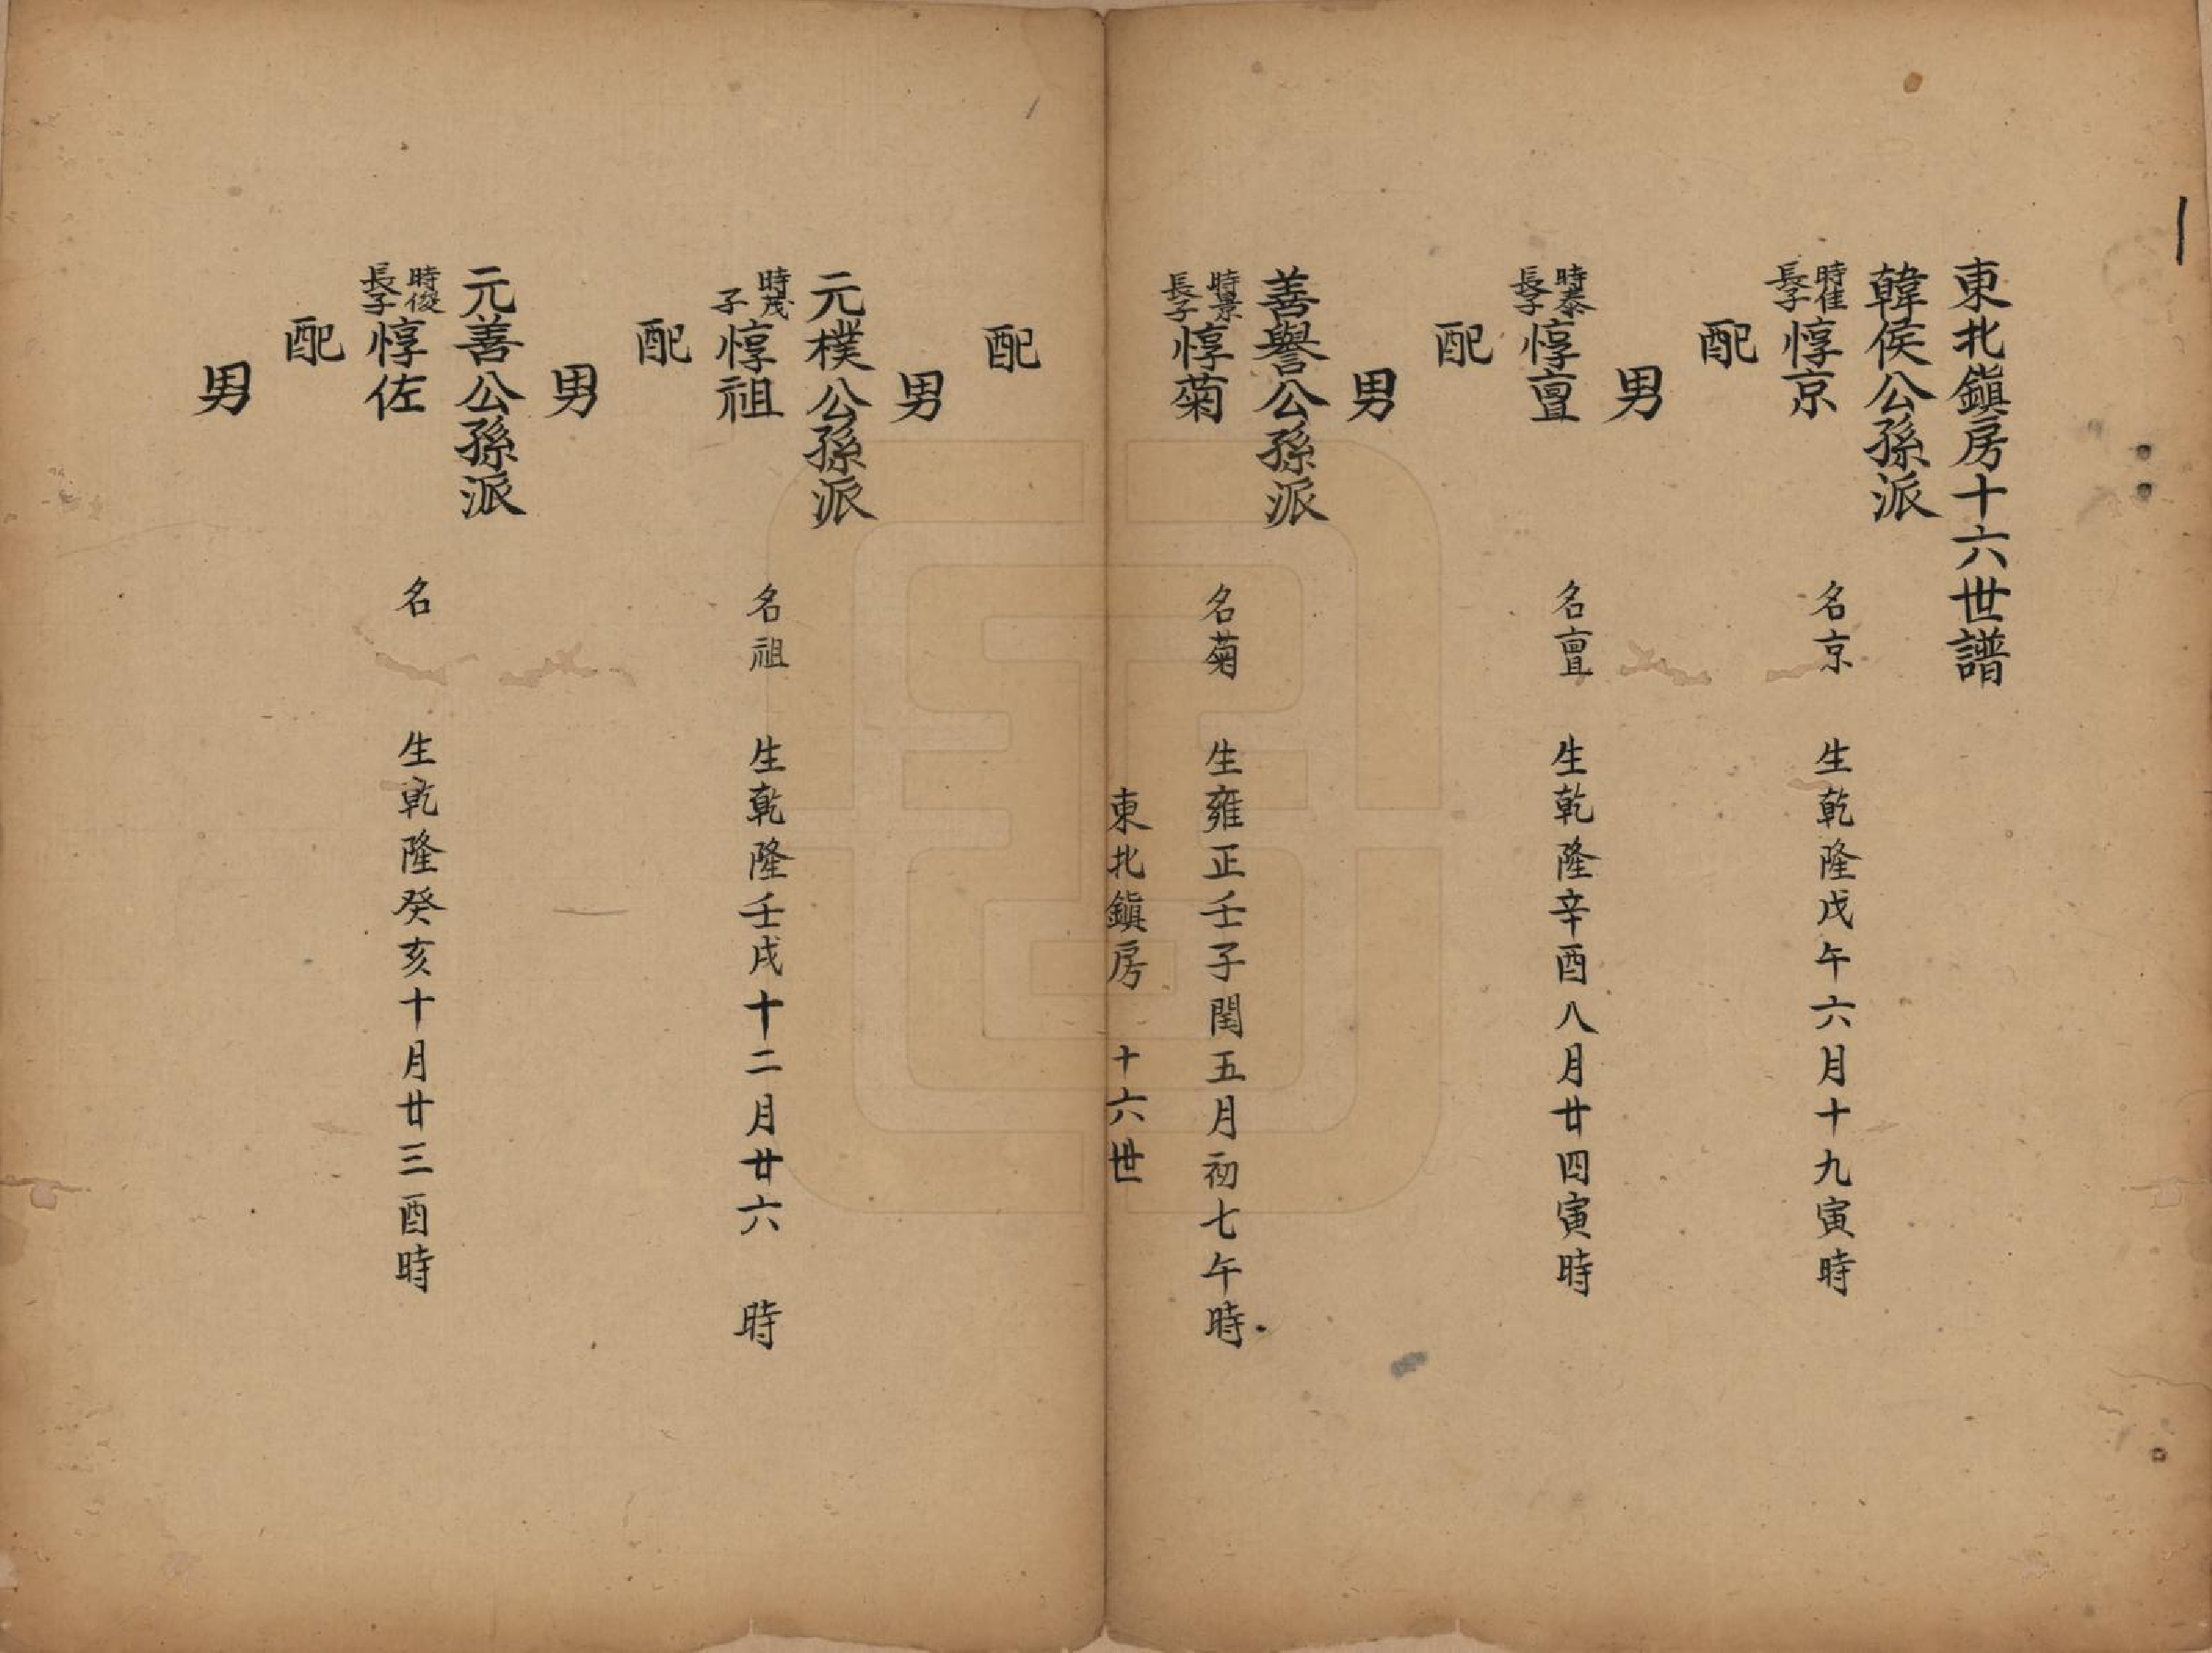 東北鎮房十六世譜
韓侯公孫派
時佳長子惇京　名京　生乾隆戊午六月十九寅時
配
男
時泰長子惇亶　名亶　生乾隆辛酉八月廿四寅時
配
男
善譽公孫派
時景長子惇菊　名菊　生雍正壬子閏五月初七午時
東北鎮房　十六世
配
男
元樸公孫派
時茂子惇祖　名祖　生乾隆壬戌十二月廿六　時
配
男
元善公孫派
時俊長子惇佐　名　生乾隆癸亥十月廿三酉時
配
男